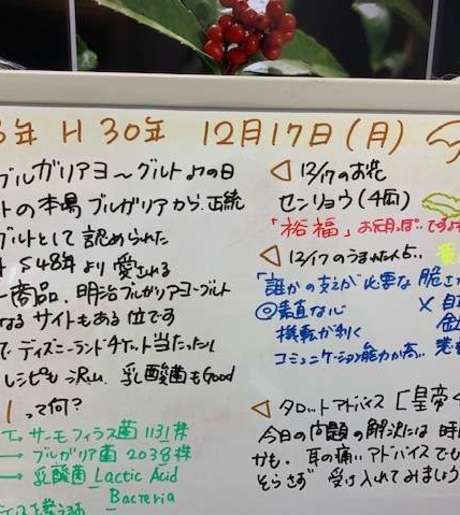 年 H 30年 12月17日(月)
ブルガリアヨーグルトの日
トの本場 ブルガリアから、正統
グルトとして 認められた
S48年より愛される
ー商品、明治ブルガリアヨーグルト
なる サイトもある 位です
で ディズニーランドチケット当たったり
レシピも 沢山、乳酸菌もGood
1って何?
サーモフィラス菌 1131株
→ ブルガリア菌 2038株
→ 乳酸菌 Lactic Acid
Bacteria
◁ 12/17のお花
センリョウ(4両)
「裕福」 お正月っぽいですよ
◁ 12/17のうまれた人占い
「誰かの支えが必要な 脆さ
◎素直な心
機転が利く
コミュニケーション能力が高い
×
◁ タロットアドバイス [皇帝4
今日の問題の解決には 時
かも、耳の痛いアドバイスでも
そらさず 受け入れてみましょう